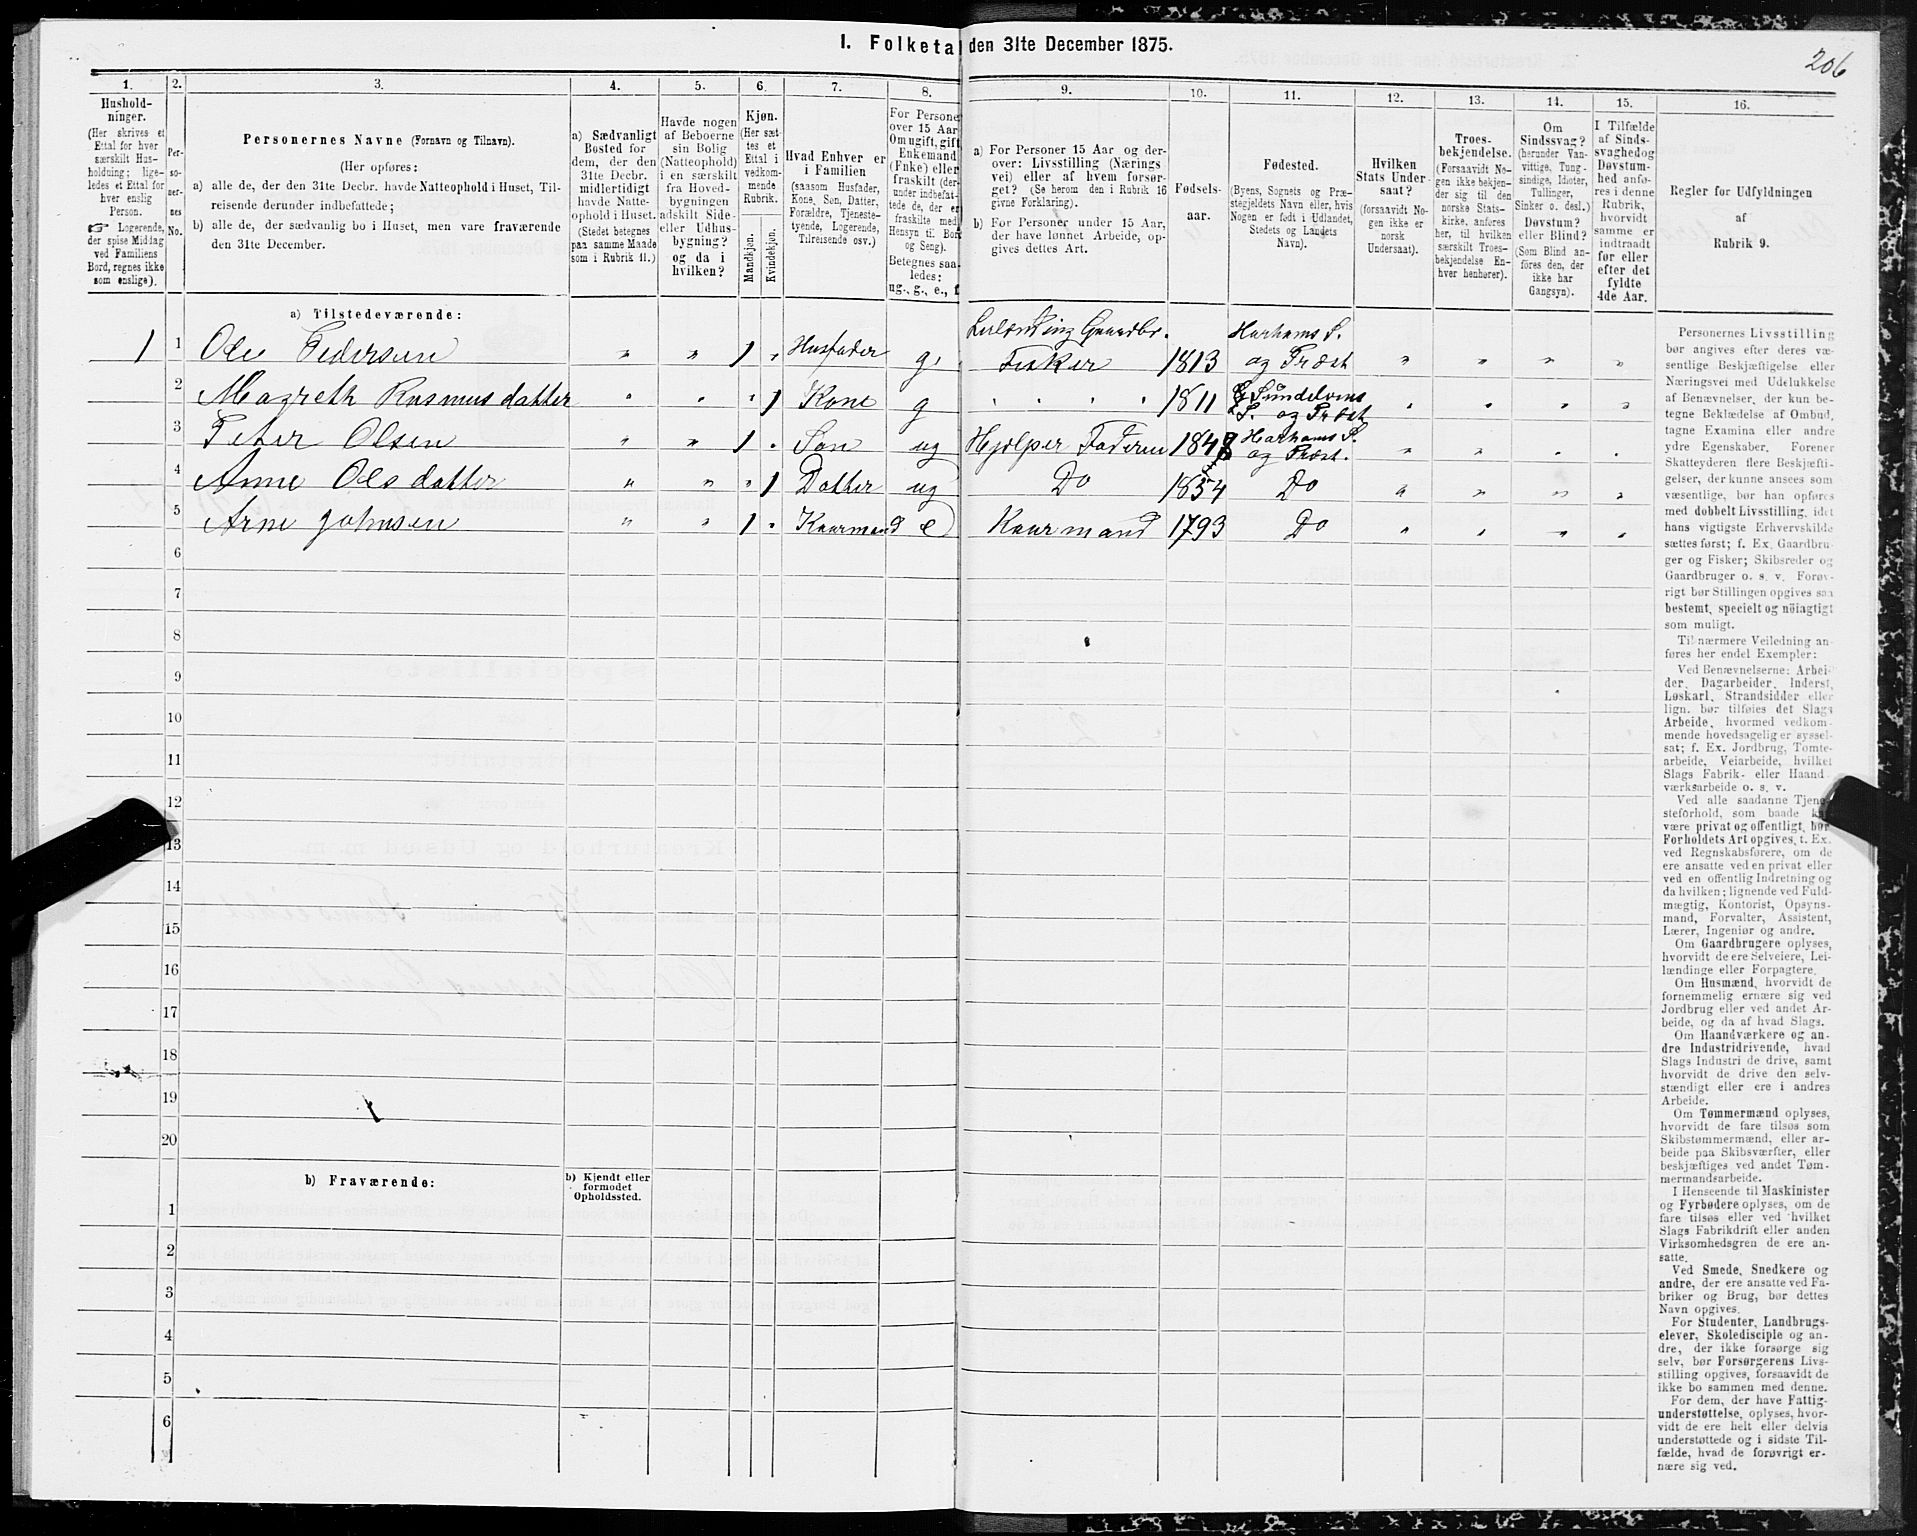 I. Folketal den 31te December 1875.
206
1.
2.
3.
4.
5.
6.
7.
8.
9.
10.
11.
12.
13.
14.
15.
16.
Hushold-
ninger.
(Her skrives et
Ettal for hver
særskilt Hus-
holdning; lige-
ledes et Ettal for
hver enslig
Person.
Logerende,
der spise Middag
ved Familiens
Bord, regnes ikke
som enslige).
Per-
so-
ner-
nes
No.
Personernes Navne (Fornavn og Tilnavn).
(Her opføres:
a) alle de, der den 31te Decbr. havde Natteophold i Huset, Til-
reisende derunder indbefattede;
b) alle de, der sædvanlig bo i Huset, men vare fraværende
den 31te December.
a) Sædvanligt
Bosted for
dem, der den
31te Decbr.
midlertidigt
havde Natte-
ophold i Huset.
(Stedet betegnes
paa samme Maade
som i Rubrik 11.)
Havde nogen
af Beboerne
sin Bolig
(Natteophold)
i en særskilt
fra Hoved-
bygningen
adskilt Side-
eller Udhus-
bygning?
og da i
hvilken?
Kjøn.
(Her sæt-
tes et
Ettal i
vedkom-
mende
Rubrik.
Mandkjøn.
Kvindekjøn.
Hvad Enhver er
i Familien
(saasom Husfader,
Kone, Søn, Datter,
Forældre, Tjeneste-
tyende, Logerende,
Tilreisende osv.)
For Persone
over 15 Aar
Om ugift, gift
Enkemand
(Enke) eller
fraskilt (der-
under indbefat-
tede de, der er
fraskilte med
Hensyn til Bor
og Seng).
Betegnes saa-
ledes:
ug., g., e., f
a) For Personer 15 Aar og der-
over: Livsstilling (Nærings
vei) eller af hvem forsør-
get? (Se herom den i Rubrik 16
givne Forklaring).
b) For Personer under 15 Aar,
der have lønnet Arbeide, op-
gives dettes Art.
Fødsels-
aar.
Fødested.
(Byens, Sognets og Præ-
stegjeldets Navn eller, hvis
Nogen er født i Udlandet,
Stedets og Landets
Navn).
Hvilken
Stats Under-
saat?
(forsaavidt No-
gen ikke er
norsk
Undersaat).
Troes-
bekjendelse.
(Forsaavidt No-
gen ikke bekjen-
der sig til den
norske Stats-
kirke, anføres
her, til hvilken
særskilt Troes-
bekjendelse En-
hver henhører).
Om
Sindssvag?
(herunder Van-
vittige, Tung-
sindige, Idioter,
Tullinger,
Sinker o. desl.)
Døvstum?
eller Blind?
(Som Blind an-
føres den, der
ikke har
Gangsyn).
I Tilfælde
af Sinds-
svaghed og
Døvstum-
hed anfø-
res i denne
Rubrik,
hvorvidt
samme er
indtraadt
før eller
efter det
fyldte
4de Aar.
Regler for Udfyldningen
af
Rubrik 9.
a) Tilstedeværende:
1 1 Ole Pedersen " " 1 . Husfader g. Leilænding Gaardbr. Fisker 1813 Harhams S. og Præst " " " "
2 Magreth Rasmusdatter " " " 1 Kone g " " " " 1811 Søndelvens S. og Præst " " " "
3 Peter Olsen " " 1 . Søn ug Hjælper Faderen 1848 Harhams S. og Præst. " " " "
4 Anne Olsdatter " " " 1 Datter ug Do 1854 Do " " " "
5 Arne Johnsen " " 1 . Kaarmand e Kaarmand 1793 Do " " " "
6
7
8
9
10
11
12
13
14
15
16
17
18
19
20
b) Fraværende:
b) Kjendt eller
formodet
Opholdssted.
1
2
3
4
5
6
Personernes Livsstilling
bør angives efter deres væ-
sentlige Beskjæftigelse eller
Næringsvei med Udelukkelse
af Benævnelser, der kun be-
tegne Beklædelse af Ombud,
tagne Examina eller andre
ydre Egenskaber. Forener
Skatteyderen flere Beskjæfti-
gelser, der kunne ansees som
væsentlige, bør han opføres
med dobbelt Livsstilling, idet
hans vigtigste Erhvervskilde
sættes først; f. Ex. Gaardbru-
ger og Fisker; Skibsreder og
Gaardbruger o. s. v. Forøv-
rigt bør Stillingen opgives saa
bestemt, specielt og nøiagtigt
som muligt.
Til nærmere Veiledning an-
føres her endel Exempler:
Ved Benævnelserne: Arbei-
der, Dagarbeider, Inderst,
Løskarl, Strandsidder eller
lign. bør tilføies det Slags
Arbeide, hvormed vedkom-
mende hovedsagelig er syssel-
sat; f. Ex. Jordbrug, Tomte-
arbeide, Veiarbeide, hvilket
Slags Fabrik- eller Haand-
værksarbeide o. s. v.
Ved alle saadanne Tjene-
steforhold, som baade kan
være privat og offentligt, bør
Forholdets Art opgives, t. Ex.
ved Regnskabsførere, om de
ere ansatte ved en privat eller
ved en offentlig Indretning og
da hvilken; lignende ved Fuld-
mægtig, Kontorist, Opsyns-
mand, Forvalter, Assistent,
Lærer, Ingeniør og andre.
Om Gaardbrugere oplyses,
hvorvidt de ere Selveiere, Lei-
lændinge eller Forpagtere.
Om Husmænd, hvorvidt de
fornemmelig ernære sig ved
Jordbrug eller ved andet Ar-
beide, og da af hvad Slags.
Om Haandværkere og an-
dre Industridrivende, hvad
Slags Industri de drive, samt
hvorvidt de drive den selv-
stændigt eller ere i andres
Arbeide.
Om Tømmermænd oplyses,
hvorvidt de fare tilsøs som
Skibstømmermænd, eller ar-
beide paa Skibsværfter, eller
beskjæftiges ved andet Tøm-
mermandsarbeide.
I Henseende til Maskinister
og Fyrbødere oplyses, om de
fare tilsøs eller ved hvilket
Slags Fabrikdrift eller anden
Virksomhedsgren de ere an-
satte.
Ved Smede, Snedkere og
andre, der ere ansatte ved Fa-
briker og Brug, bør dettes
Navn opgives.
For Studenter, Landbrugs-
elever, Skoledisciple og an-
dre, der ikke forsørge sig
selv, bør Forsørgerens Livs-
stilling opgives, forsaavidt de
ikke bo sammen med denne.
For dem, der have Fattig-
understøttelse, oplyses, hvor-
vidt de ere helt eller delvis
understøttede og i sidste Til-
fælde, hvad de forøvrigt er-
nære sig ved.